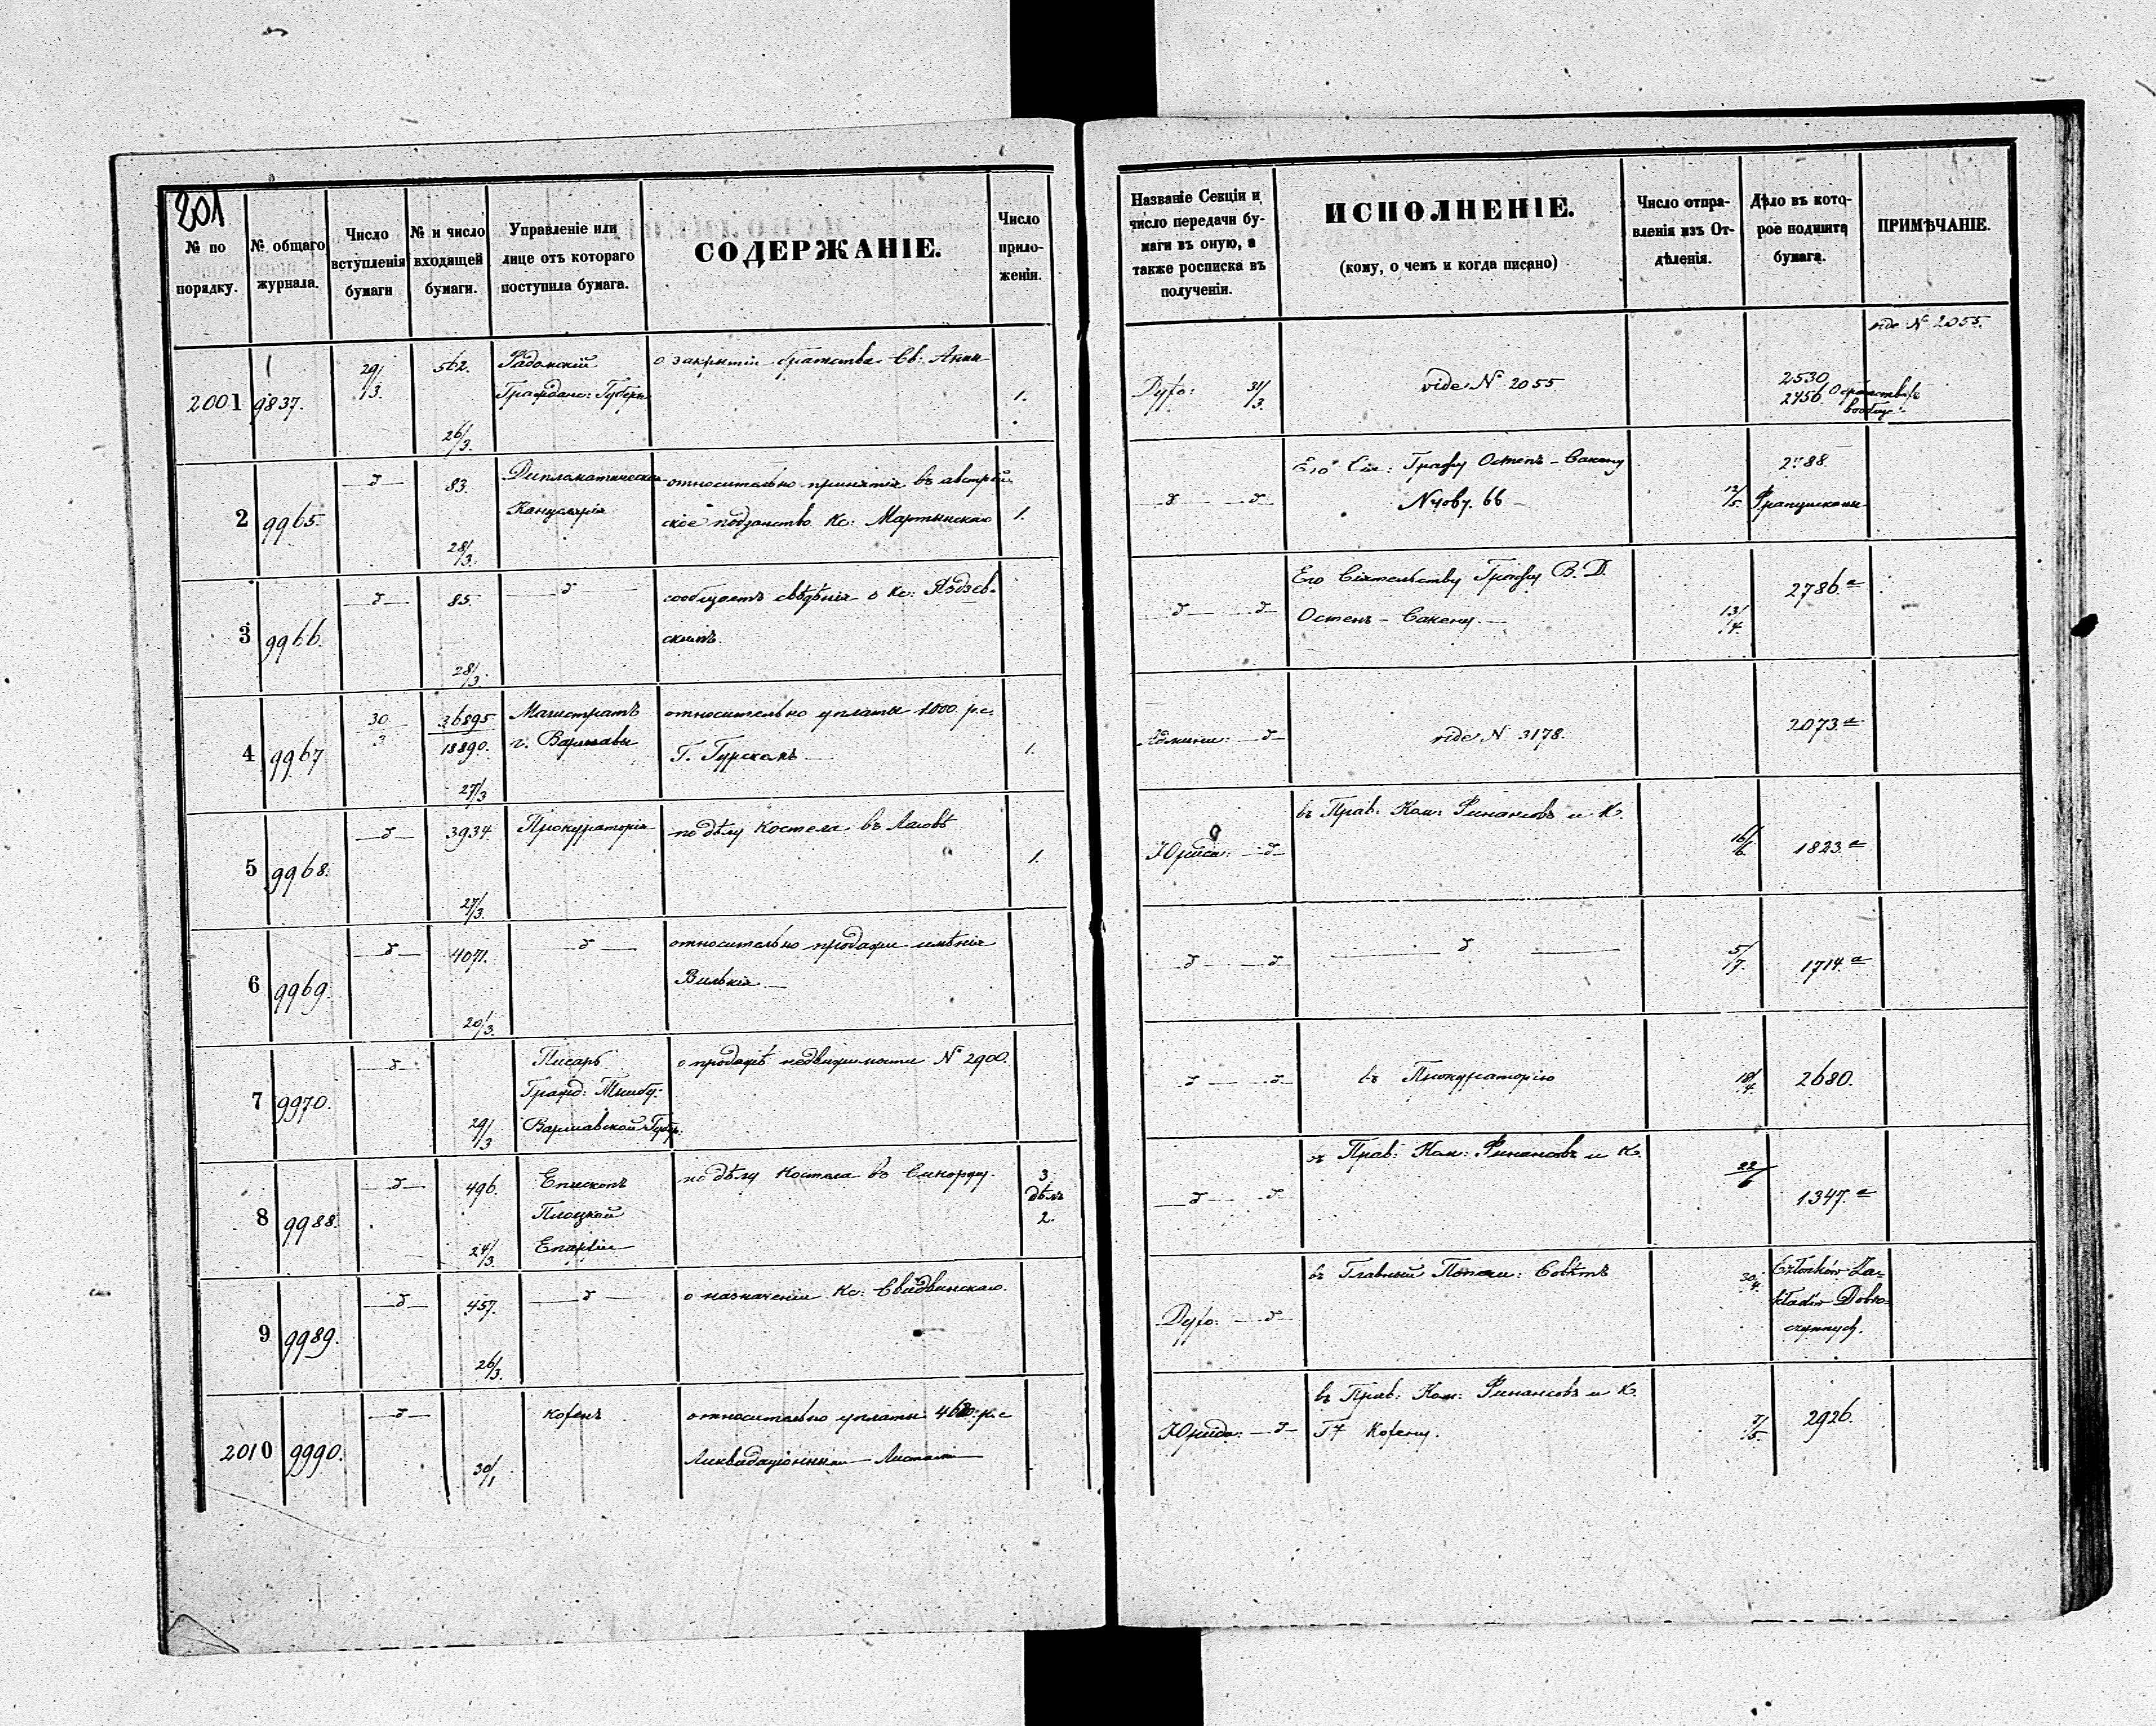 201
№ по порядку.
№ общаго журнала.
Число вступленія бумаги
№ и число входящей бумаги.
Управленіе или лице отъ котораго поступила бумага.
СОДЕРЖАНІЕ.
Число приложеній.
Названіе Секціи и число передачи бумаги въ оную, а также росписка въ полученіи.
ИСПОЛНЕНІЕ.
(кому, о чемъ и когда писано)
Число отправленія изъ Отдѣленія.
Дѣло въ которое подшита бумага.
ПРИМѢЧАНІЕ.
vide № 2055.
2001 9837. 29/3. 562. 26/3. Радомскій
Граждан: Губерн
о закрытіи братства Св: Анны
1.
Духо: 31/3. vide № 2055 2530
2456
2 9965. 83. 28/3. Дипломатическая
Канцелярія
относительно принятія въ австрій
ское подданство Кс: Мартынскаго 1.
Его Сія: Графу Остенъ-Сакену
12/5. 2788
Францискане
3 9966. 85. 28/3.
сообщаетъ свѣдѣнія о Кс:
скимъ.
Его Сіятельству Графу В. Д.
Остенъ-Сакену. 13/4. 2786.a
4 9967 30/3 36895
18890. 27/3
Магистратъ
г. Варшавы
относительно уплаты 1000 р.с.
Г. Гурскомъ
1.
vide № 3178. 2073.a
5 9968. 3934. 27/3. Прокураторія
по дѣлу Костела въ
1.
Юридич: въ Прав: Ком: Финансовъ и К. 16/6. 1823.a
6 9969. 4071. 20/3.
относительно продажи имѣнія
5/7. 1714.a
7 9970. 29/3 Писарь
Гражд: Трибу:
Варшавской Губер:
о продажѣ недвижимости № 2900.
въ Прокураторію 18/4. 2680.
8 9988. 496. 24/3. Епископъ
Плоцкой
Епархіи
по дѣлу Костела въ
3.
дѣлъ
2.
въ Прав: Ком: Финансовъ и К. 22/6 1347.a
9 9989. 457. 26/3.
о назначеніи Кс: Свидвинскаго.
Духо: въ Главный Попечи: Совѣтъ 30/4. Członków Za-
kładów Dobro-
czynnych.
2010 9990. 30/1 Когенъ
относительно уплаты р.с
Ликвидаціонными Листами
Юридич: въ Прав: Ком: Финансовъ и К.
Когену. 7/5. 2926.